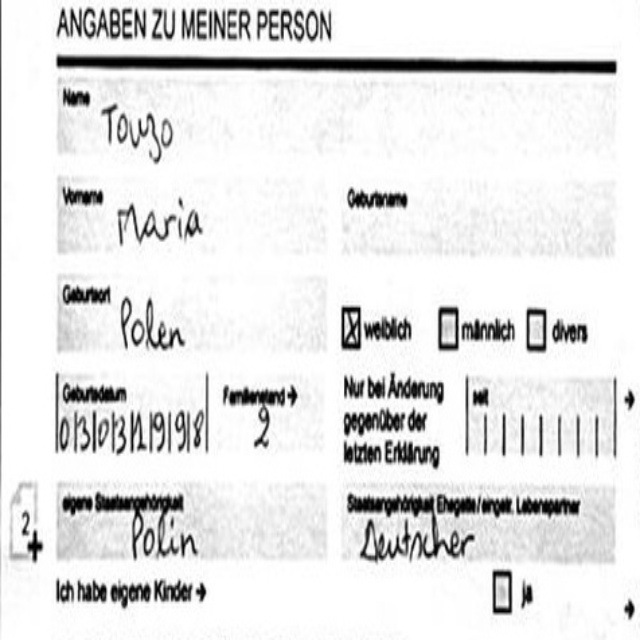 ANGABEN ZU MEINER PERSON
Name
Tougo
Vorname
Maria
Geburtsname
Geburtsort
Polen
X weiblich männlich divers
Geburtsdatum
03031998
Familienstand →
2
Nur bei Änderung
gegenüber der
letzten Erklärung
seit
→
2
+
eigene Staatsangehörigkeit
Polin
Staatsangehörigkeit Ehegatte / eingetr. Lebenspartner
Deutscher
Ich habe eigene Kinder →
ja
→